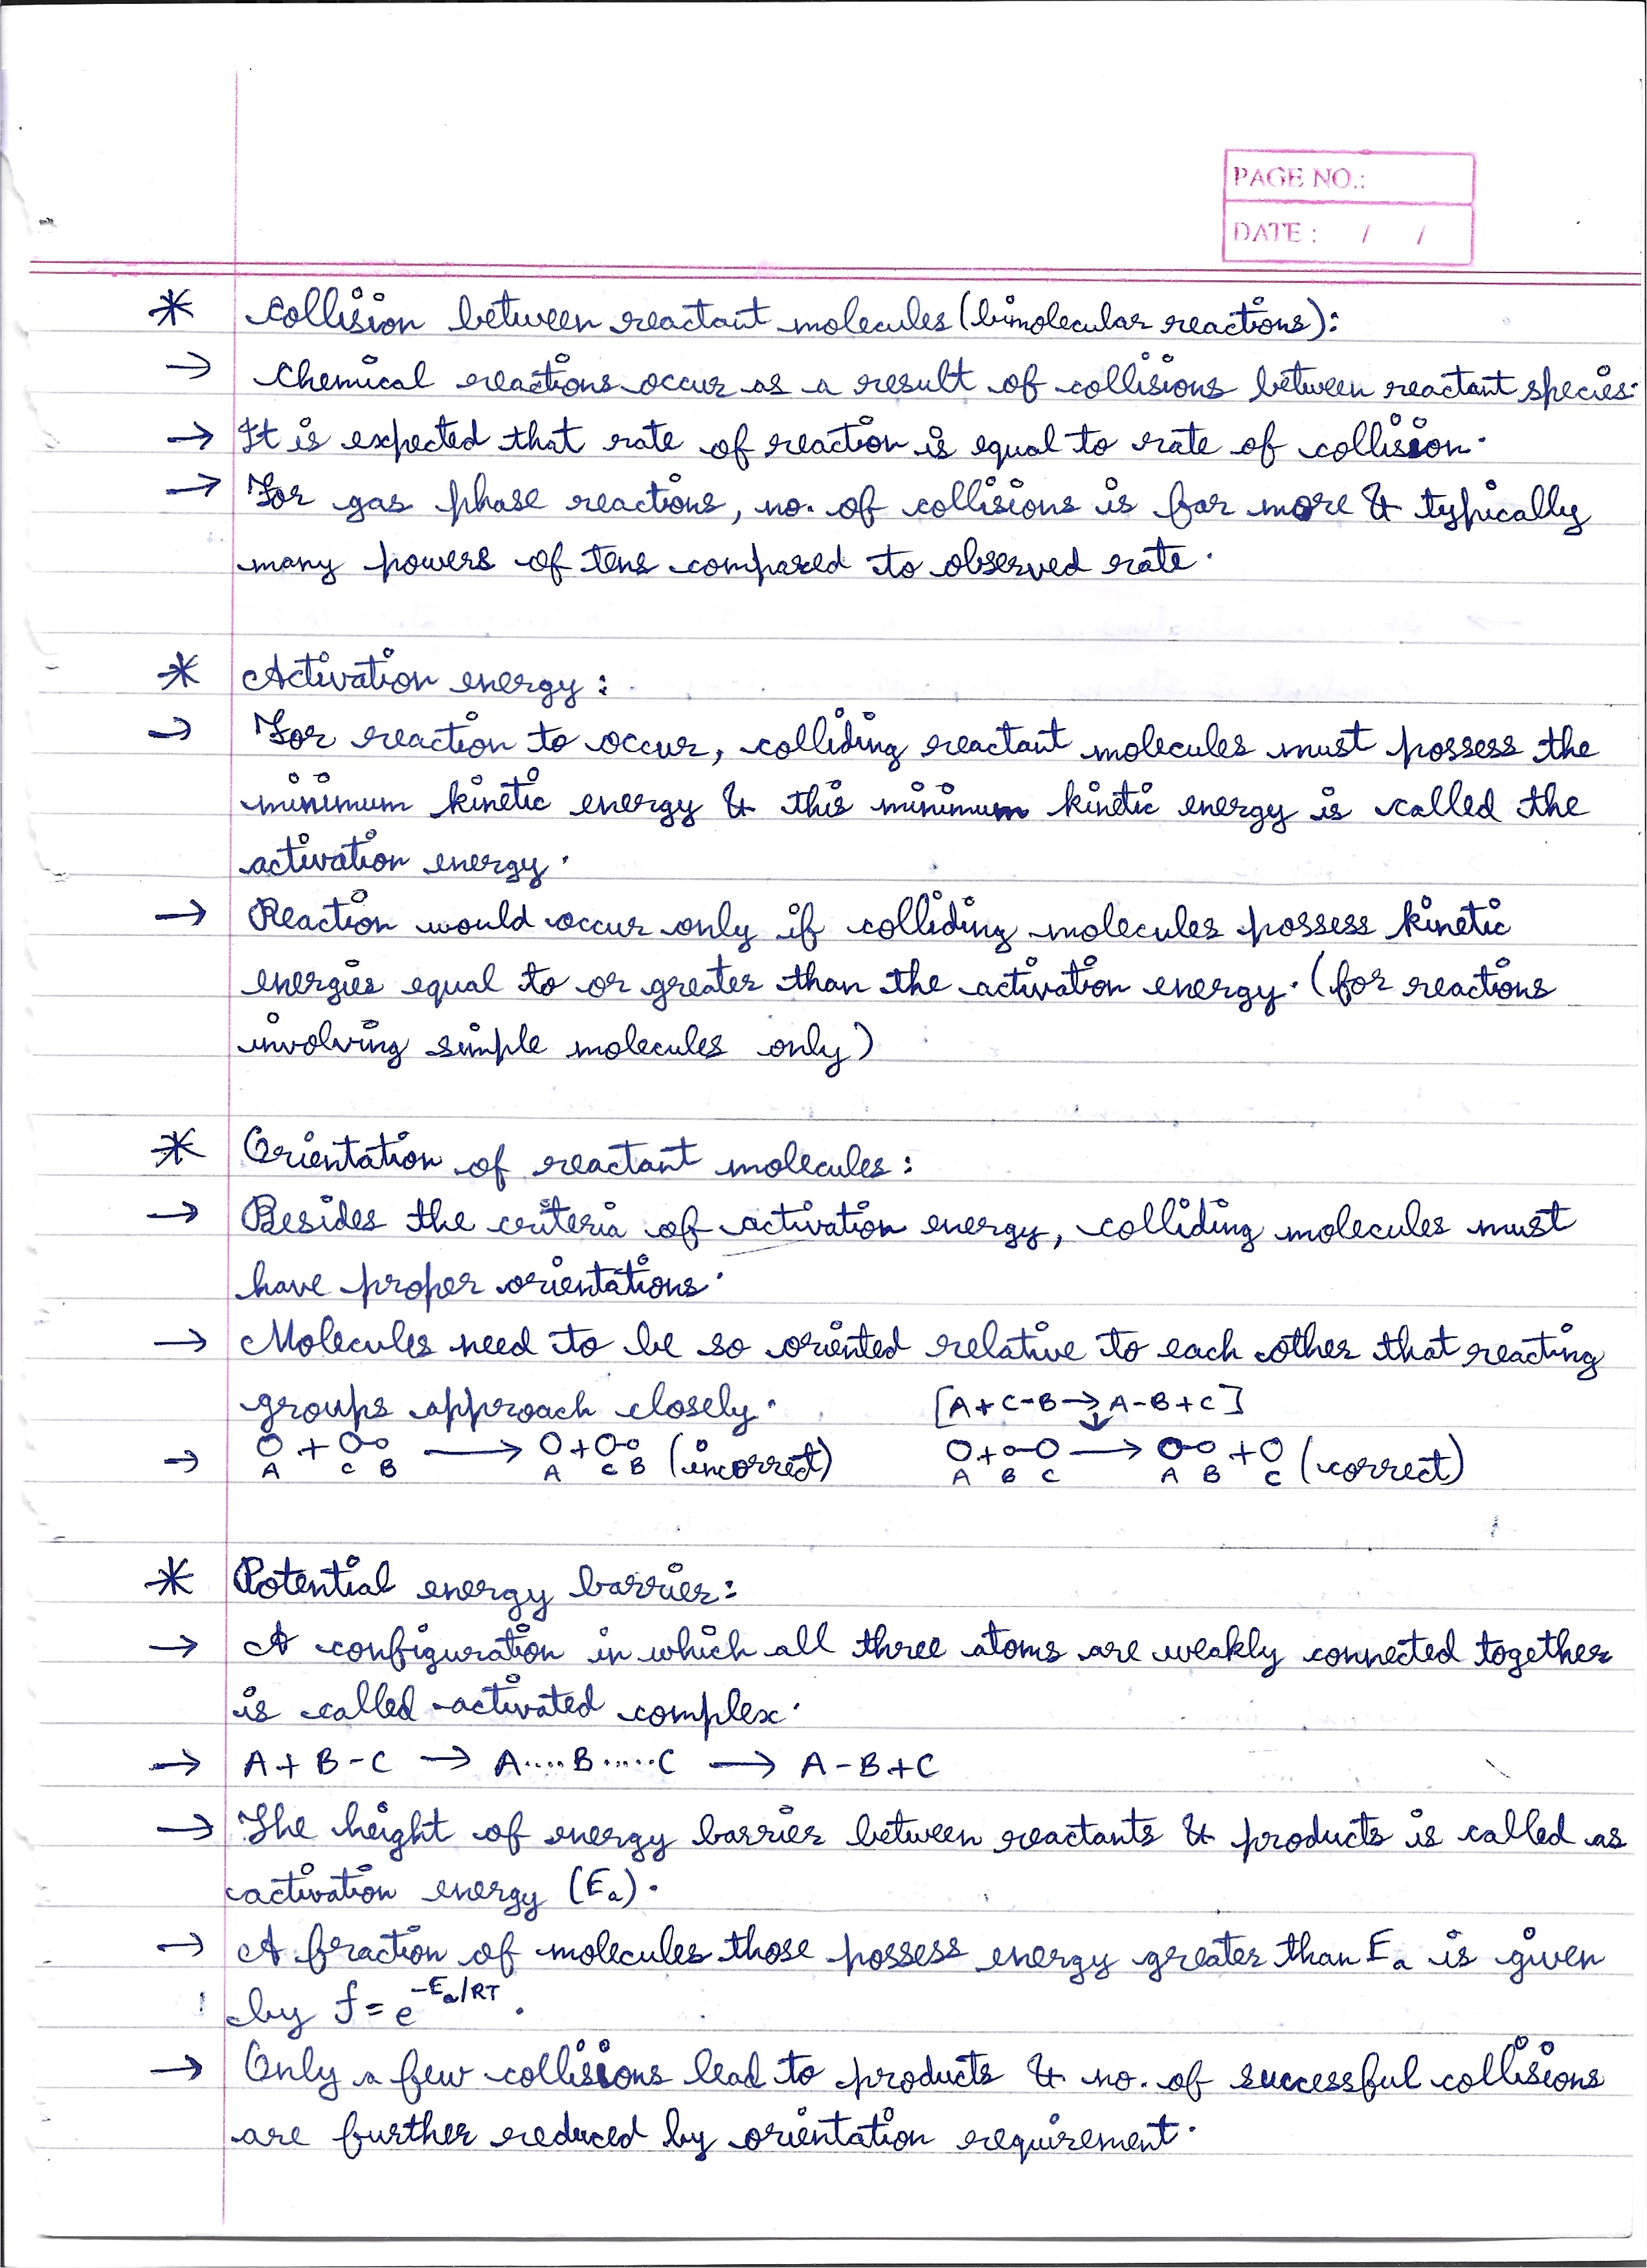 PAGE NO.:
DATE : / /
* Collision between reactant molecules (bimolecular reactions):
→ Chemical reactions occur as a result of collisions between reactant species.
→ It is expected that rate of reaction is equal to rate of collision.
→ For gas phase reactions, no. of collisions is far more & typically
many powers of tens compared to observed rate.
* Activation energy:
→ For reaction to occur, colliding reactant molecules must possess the
minimum kinetic energy & this minimum kinetic energy is called the
activation energy.
→ Reaction would occur only if colliding molecules possess kinetic
energies equal to or greater than the activation energy. (for reactions
involving simple molecules only)
* Orientation of reactant molecules:
→ Besides the criteria of activation energy, colliding molecules must
have proper orientations.
→ Molecules need to be so oriented relative to each other that reacting
groups approach closely. [A+C-B→A-B+C]
→ + → + (incorrect) ↓ + → + (correct)
A C B A C B A B C A B C
* Potential energy barrier:
→ A configuration in which all three atoms are weakly connected together
is called activated complex.
→ A + B - C → A....B.....C → A - B + C
→ The height of energy barrier between reactants & products is called as
activation energy (Eₐ).
→ A fraction of molecules those possess energy greater than Eₐ is given
by f = e^-Eₐ/RT.
→ Only a few collisions lead to products & no. of successful collisions
are further reduced by orientation requirement.